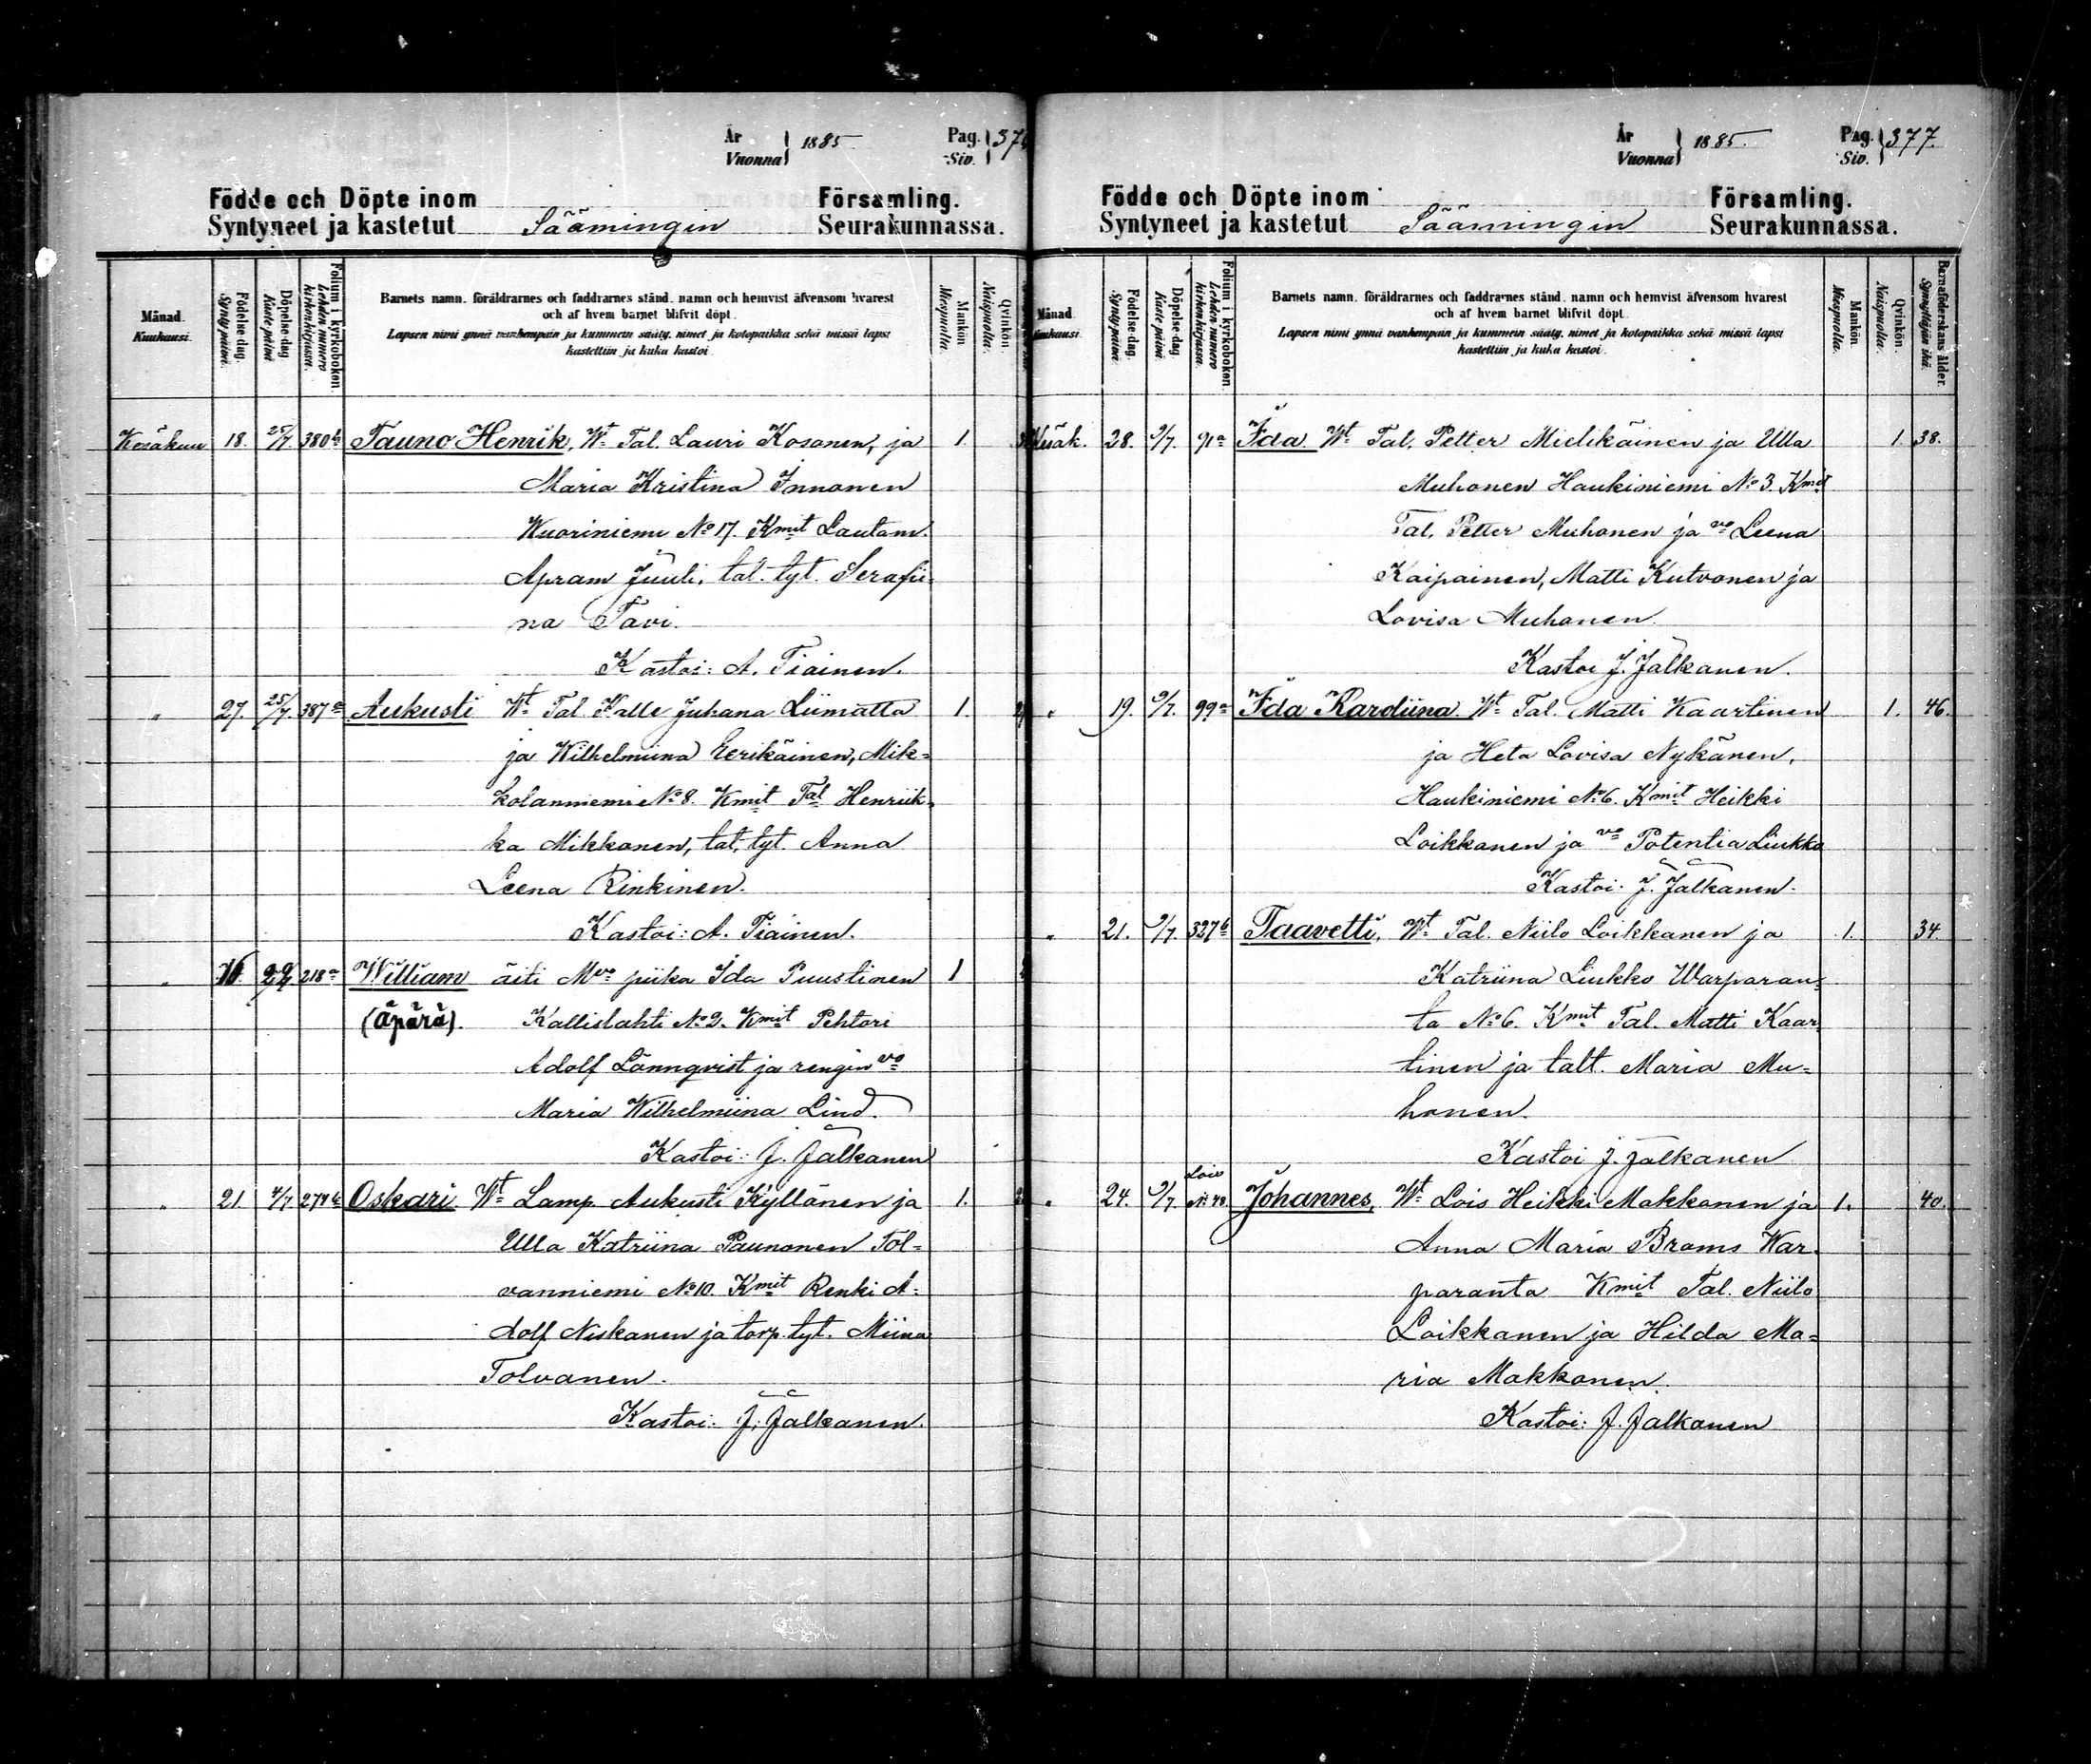 År Vuonna 1885 Pag. Siv. 376
Födde och Döpte inom Församling.
Syntyneet ja kastetut Säämingin Seurakunnassa.
Månad. Kuukausi.
Födelse-dag. Syntypäivä.
Döpelse-dag. Kastepäivä.
Folium i kyrkoboken. Lehden numero kirkonkirjassa.
Barnets namn, föräldrarnes och faddrarnes stånd, namn och hemvist äfvensom hvarest
och af hvem barnet blifvit döpt.
Lapsen nimi ynnä vanhempain ja kummein sääty, nimet ja kotopaikka sekä missä lapsi
kastettiin ja kuka kastoi.
Mankön. Miespuolia.
Qvinkön. Naispuolia.
Kesäkuu 18. 25/7. 380 b Tauno Henrik, Wt Tal. Lauri Kosonen, ja 1.
Maria Kristina Innanen
Wuoriniemi No 17. Kmit Lautam.
Apram Juuli, tal. tyt. Serafii-
na Tavi.
Kastoi: A. Tiainen.
" 27. 25/7. 387 a Aukusti Wt Tal. Kalle Juhana Liimatta 1.
ja Wilhelmiina Eerikäinen, Mik-
kolanniemi No 8. Kmit Tal Henriik-
ka Mikkonen, tal. tyt. Anna
Leena Rinkinen.
Kastoi: A. Tiainen.
" 16. 22 218 a William äiti Mvo piika Ida Puustinen 1
(äpärä). Kallislahti No 2. Kmit Pehtori
Adolf Lönnqvist ja rengin vo
Maria Wilhelmiina Lind.
Kastoi: J. Jalkanen
" 21. 4/7 274 b Oskari. Wt Lamp. Aukusti Kyllönen ja 1.
Ulla Katriina Paunonen Tol-
vanniemi No 10. Kmit Renki A-
dolf Niskanen ja torp. tyt. Miina
Tolvanen.
Kastoi: J. Jalkanen.
År Vuonna 1885. Pag. Siv. 377.
Födde och Döpte inom Församling.
Syntyneet ja kastetut Säämingin Seurakunnassa.
Månad. Kuukausi.
Födelse-dag. Syntypäivä.
Döpelse-dag. Kastepäivä.
Folium i kyrkoboken. Lehden numero kirkonkirjassa.
Barnets namn, föräldrarnes och faddrarnes stånd, namn och hemvist äfvensom hvarest
och af hvem barnet blifvit döpt.
Lapsen nimi ynnä vanhempain ja kummein sääty, nimet ja kotopaikka sekä missä lapsi
kastettiin ja kuka kastoi.
Mankön. Miespuolia.
Qvinkön. Naispuolia.
Barnaföderskans ålder. Synnyttäjän ikä.
Kesäk. 28. 9/7. 91 a Ida Wt Tal. Petter Mielikäinen ja Ulla 1. 38.
Muhonen Haukiniemi No 3. Kmit
Tal. Petter Muhonen ja vo Leena
Kaipainen, Matti Kutvonen ja
Lovisa Muhonen.
Kastoi J. Jalkanen.
" 19. 9/7. 99 a Ida Karoliina. Wt Tal. Matti Kaartinen 1. 46.
ja Heta Lovisa Nykänen,
Haukiniemi No 6. Kmit Heikki
Loikkanen ja vo Potentia Liukko
Kastoi: J. Jalkanen.
" 21. 9/7. 327 b Taavetti, Wt Tal. Niilo Loikkanen ja 1. 34.
Katriina Liukko Warparan-
ta No 6. Kmit Tal. Matti Kaar-
tinen ja talt. Maria Mu-
honen.
Kastoi J. Jalkanen
" 24. 9/7. Lois No 48. Johannes, Wt Lois Heikki Makkonen ja 1. 40.
Anna Maria Broms War-
paranta Kmit Tal. Niilo
Loikkanen ja Hilda Ma-
ria Makkonen.
Kastoi: J. Jalkanen